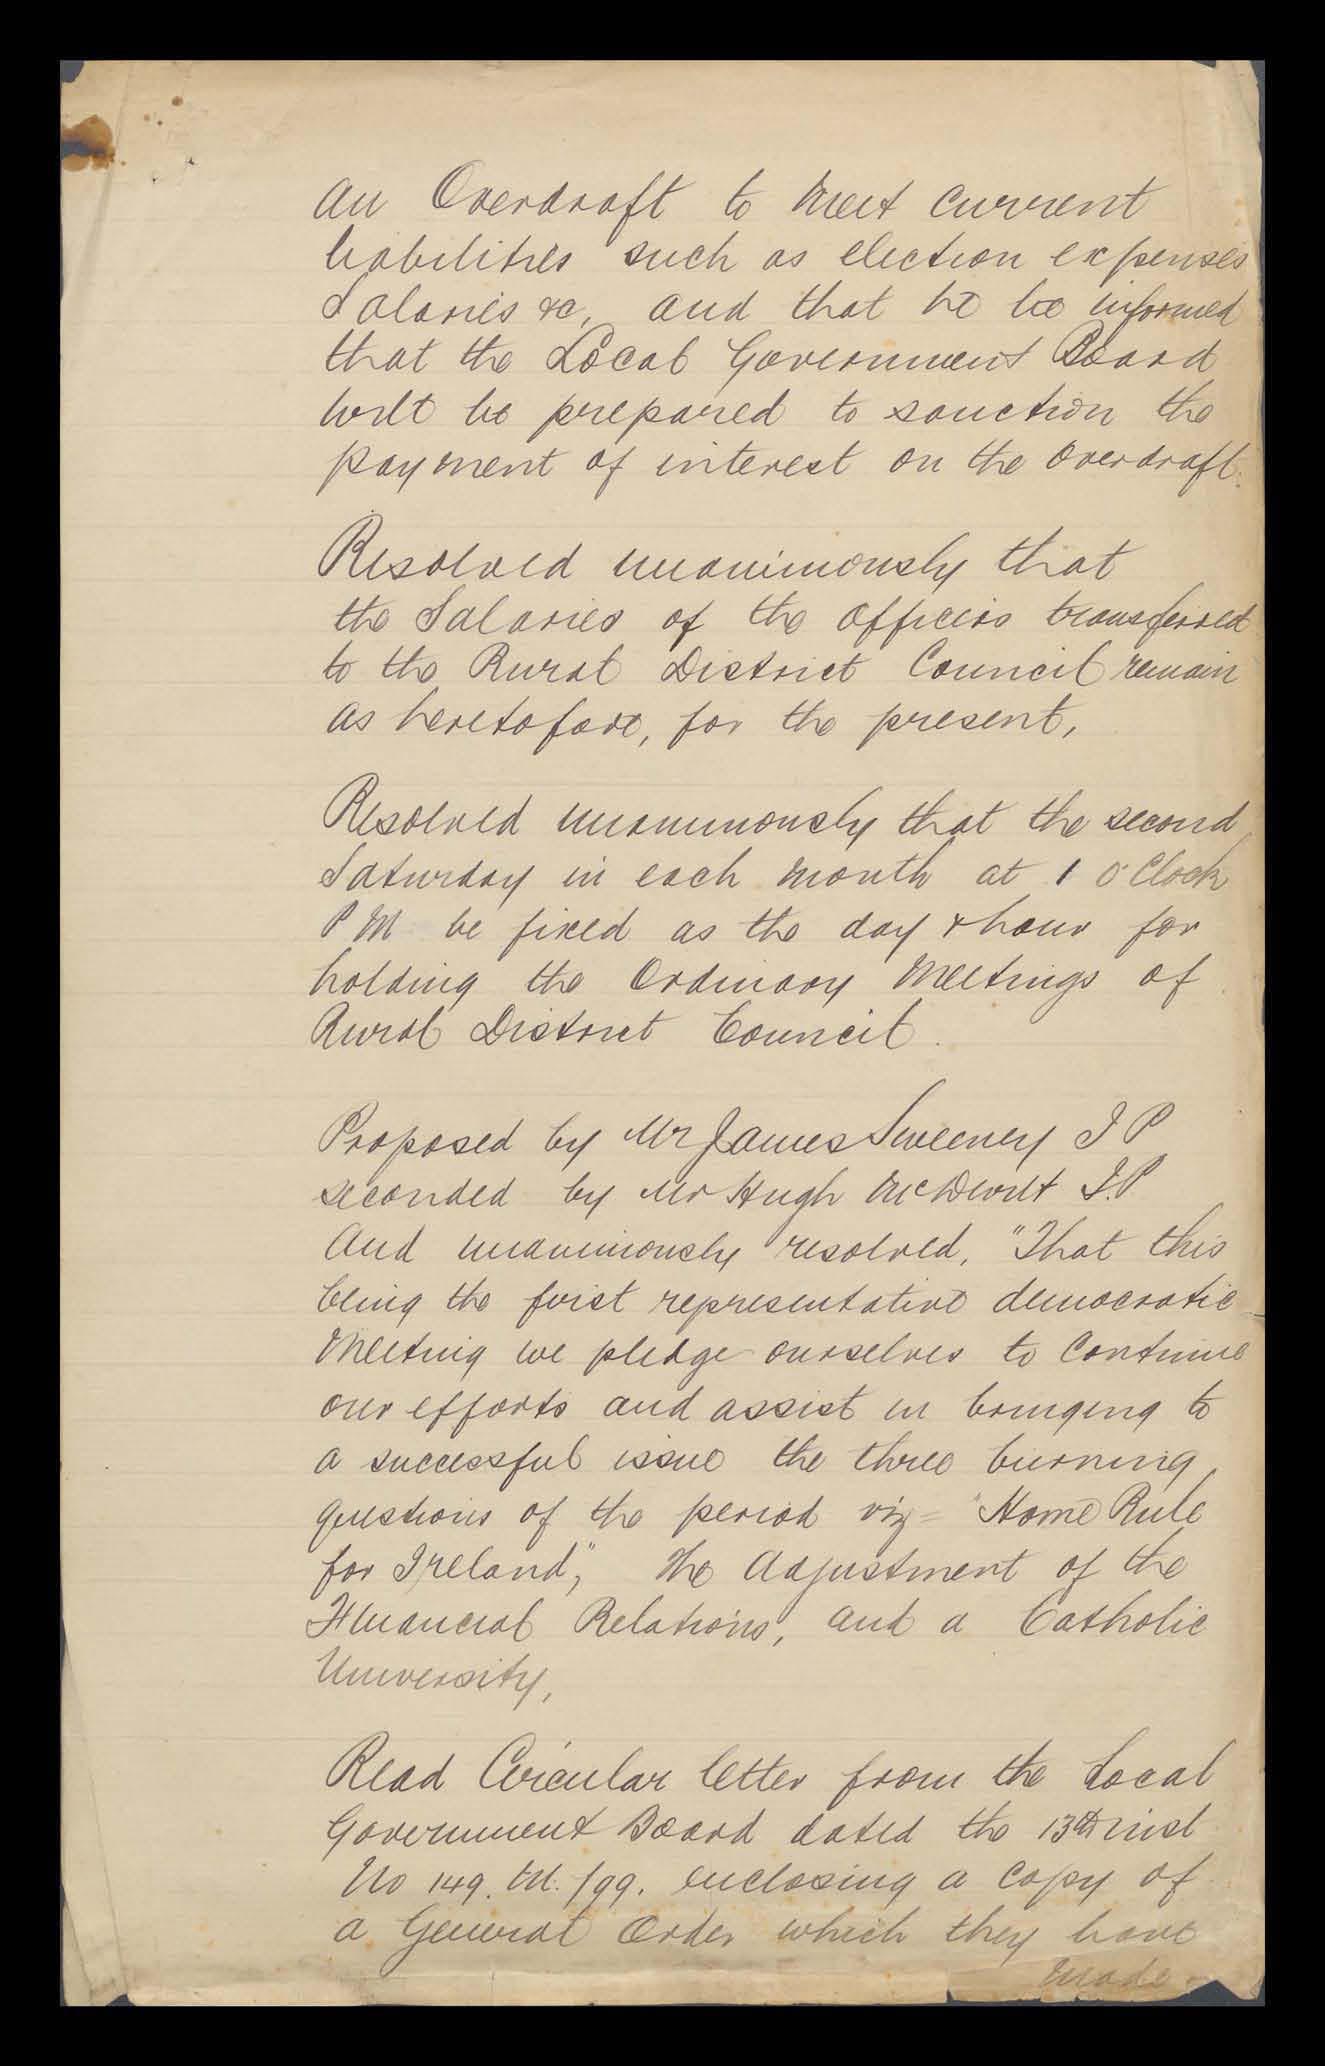 an Overdraft to meet current
liabilities such as election expenses
Salaries &c, and that he be informed
that the Local Government Board
will be prepared to sanction the
payment of interest on the overdraft.
Resolved unanimously that
the Salaries of the Officers transferred
to the Rural District Council remain
as heretofore, for the present,
Resolved unanimously that the second
Saturday in each month at 1 O'Clock
P M be fixed as the day & hour for
holding the Ordinary Meetings of
Rural District Council.
Proposed by Mr James Sweeney J P
seconded by Mr Hugh McDevitt J.P
And unanimously resolved, "That this
being the first representative democratic
Meeting we pledge ourselves to Continue
our efforts and assist in bringing to
a successful issue the three burning
questions of the period viz = "Home Rule
for Ireland," The Adjustment of the
Financial Relations, and a Catholic
University,
Read Circular letter from the Local
Government Board dated the 13th inst
No 149. M. /99. enclosing a Copy of
a General Order which they have
made